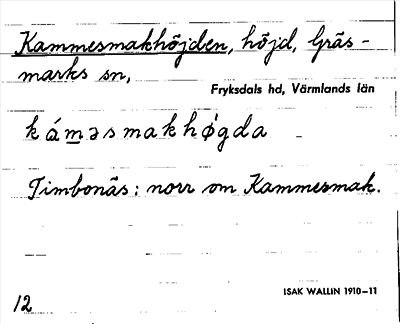 Kammesmakhöjden, höjd, Gräs-
marks sn,
Fryksdals hd, Värmlands län
k á m ə s m a k h ǿ g d a
Timbonäs: norr om Kammesmak.
ISAK WALLIN 1910–11
12